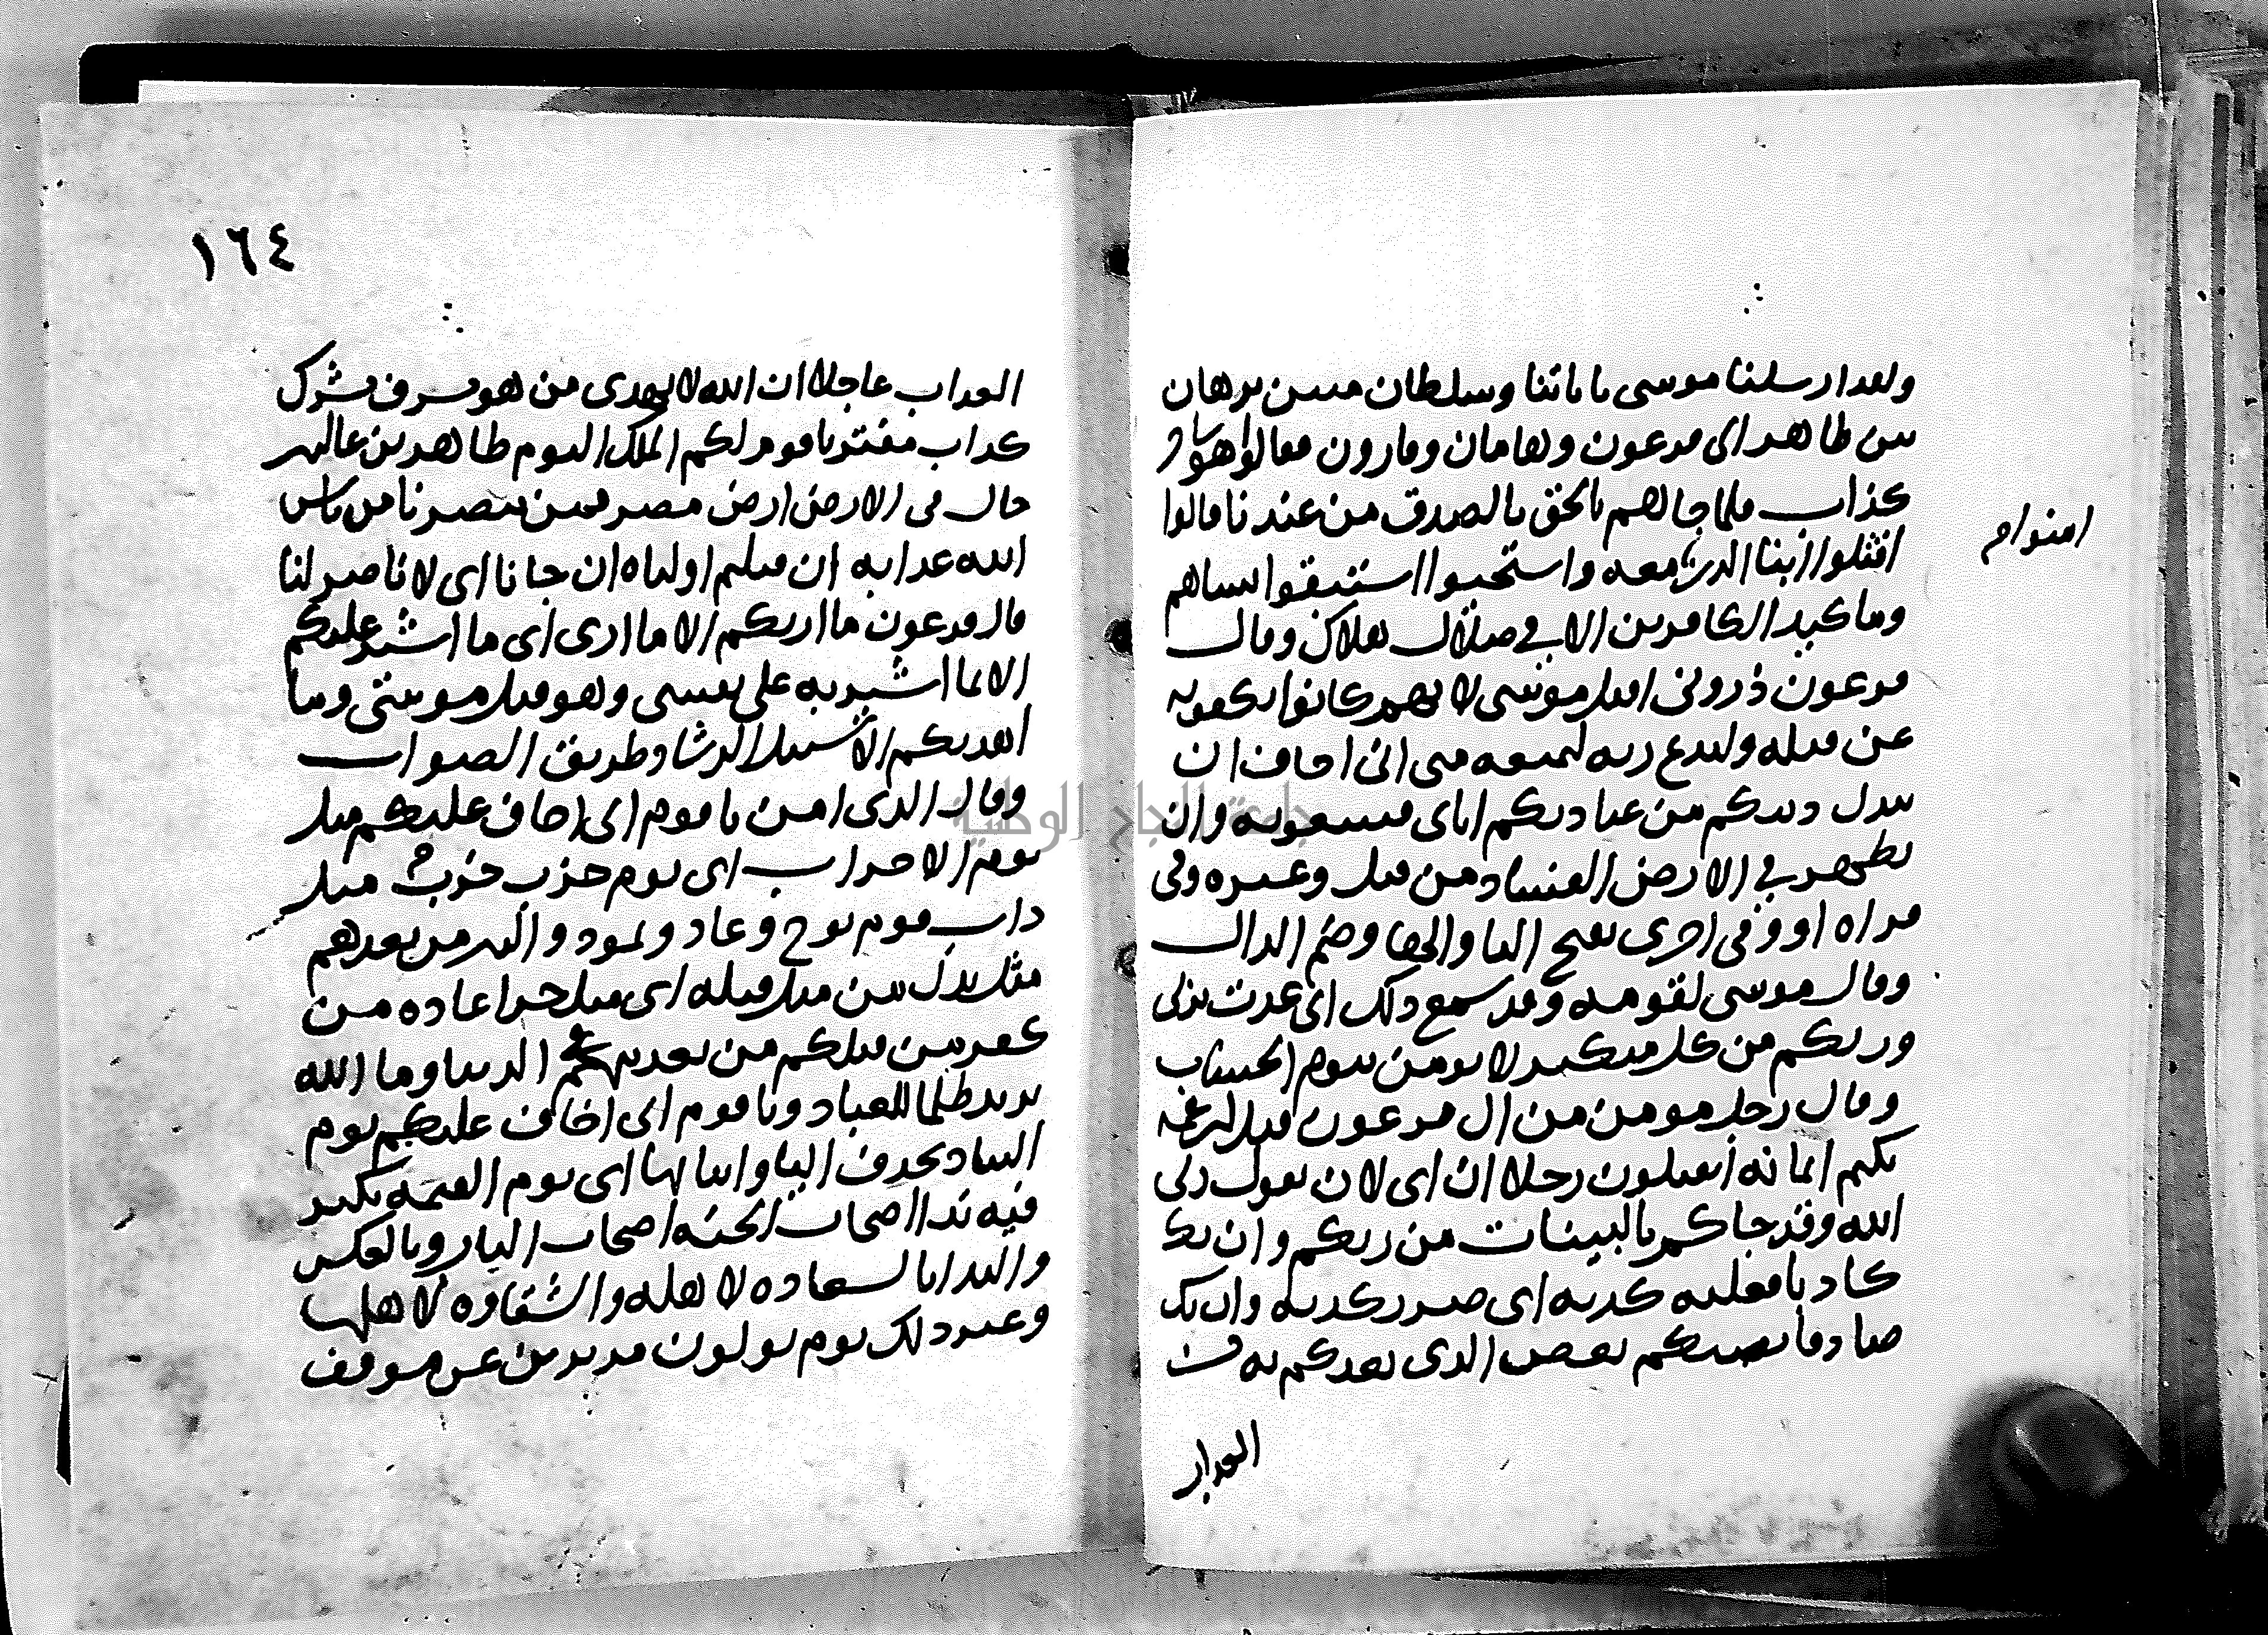 ولقد ارسلنا موسى باياتنا وسلطان مبين برهان
بين ظاهر الى فرعون وهامان وقارون فقالوا هو ساحر
كذاب فلما جاهم بالحق بالصدق من عندنا قالوا
اقتلوا ابنا الذين معه واستحيوا استبقوا نساهم
امنوا م
وما كيد الكافرين الا في ضلال هلاك وقال
فرعون ذروني اقتل موسى لانهم كانوا يكفونه
عن قتله وليدع ربه ليمنعه مني اني اخاف ان
يبدل دينكم من عبادتكم اياى فتتبعونه وان
يظهر في الارض الفساد من قتل وغيره وفي
قراه او وفي اخرى بفتح اليا والها وضم الدال
وقال موسى لقومه وقد سمع ذلك اي عذت بربي
وربكم من كل متكبر لا يومن بيوم الحساب
وقال رجل مومن من ال فرعون قيل ابن عمه
يكتم ايمانه اتقتلون رجلا ان اى لان يقول ربي
الله وقد جاكم بالبينات من ربكم وان يك
كاذبا فعليه كذبه اى ضرر كذبه وان يك
صادقا يصبكم بعض الذى يعدكم به من
العذاب
١٦٤
العذاب عاجلا ان الله لا يهدى من هو مسرف مشرك
كذاب مفتر يا قوم لكم الملك اليوم ظاهرين غالبين
حال في الارض ارض مصر فمن ينصرنا من باس
الله عذابه ان قتلتم اولياه ان جانا اى لا ناصر لنا
قال فرعون ما اريكم الا ما ارى اى ما اشير عليكم
الا بما اشير به على نفسى وهو قتل موسى وما
اهديكم الا سبيل الرشاد طريق الصواب
وقال الذى امن يا قوم اى اخاف عليكم مثل
يوم الاحزاب اى يوم حزب حزب مثل
داب قوم نوح وعاد وثمود والذين من بعدهم
مثل بدل من مثل قبله اى مثل جزا عاده من
كفر من قبلكم من تعذيبهم في الدنيا وما الله
يريد ظلما للعباد ويا قوم انى اخاف عليكم يوم
التناد بحذف اليا واثباتها اى يوم القيمه يكثر
فيه ندا اصحاب الجنه اصحاب النار وبالعكس
والندا بالسعاده لاهلها والشقاوه لاهلها
وغير ذلك يوم تولون مدبرين عن موقف